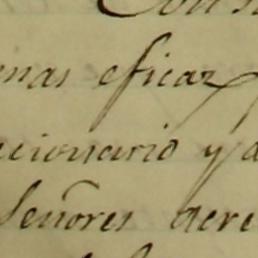 Con
enas eficaz
cionario y a
Señores acre